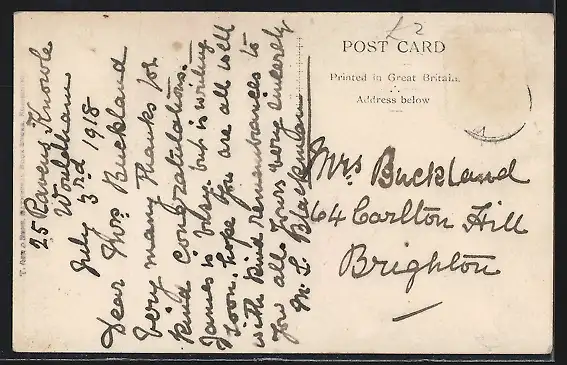 POST CARD
Printed in Great Britain.
Address below
25 Knowle
July 3rd 1918
Dear Mrs Buckland
Very many Thanks for
kind congratulations.
James is but is writing
soon, hope you are all well
with kind remembrances to
you all Yours very sincerely
M. L.
Mrs Buckland
64 Carlton Hill
Brighton